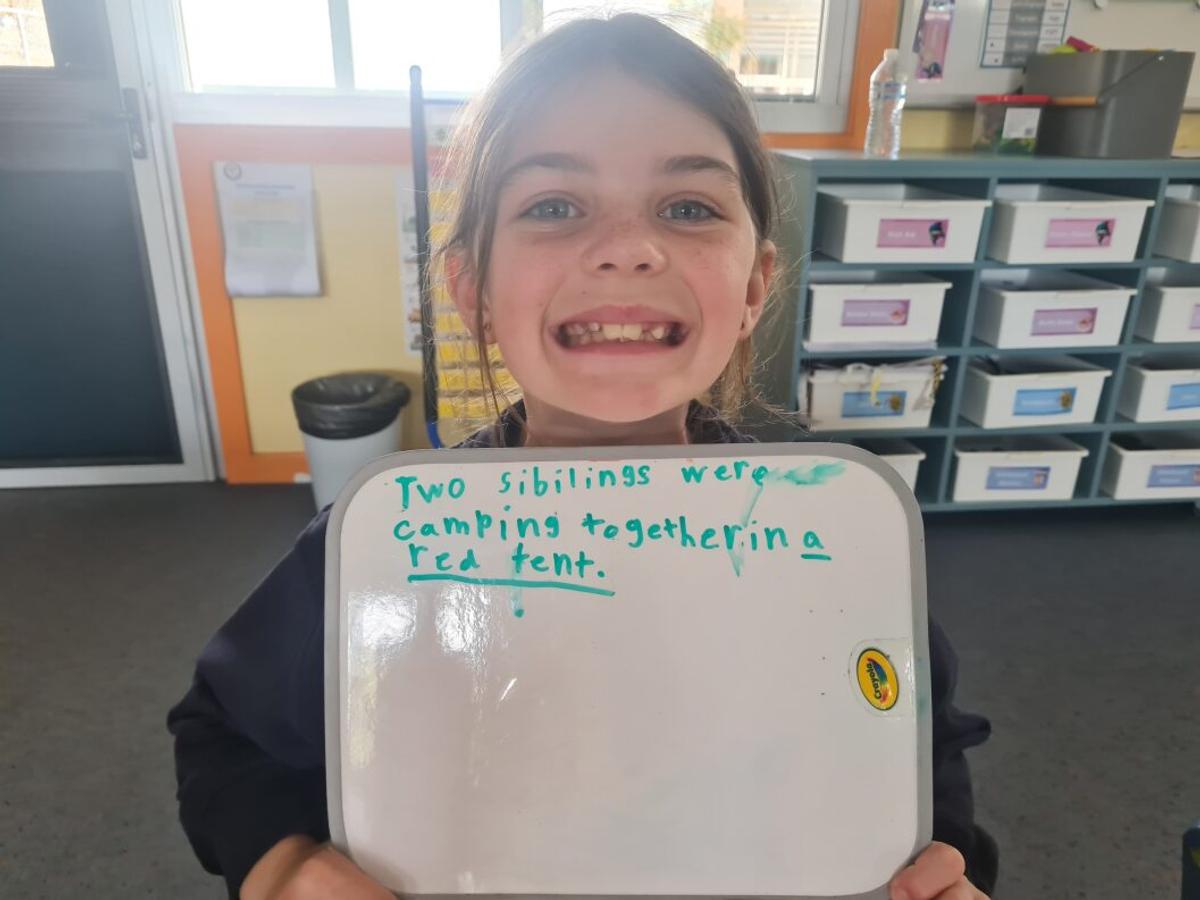 Two sibilings were
camping together in a
red tent.
Crayola